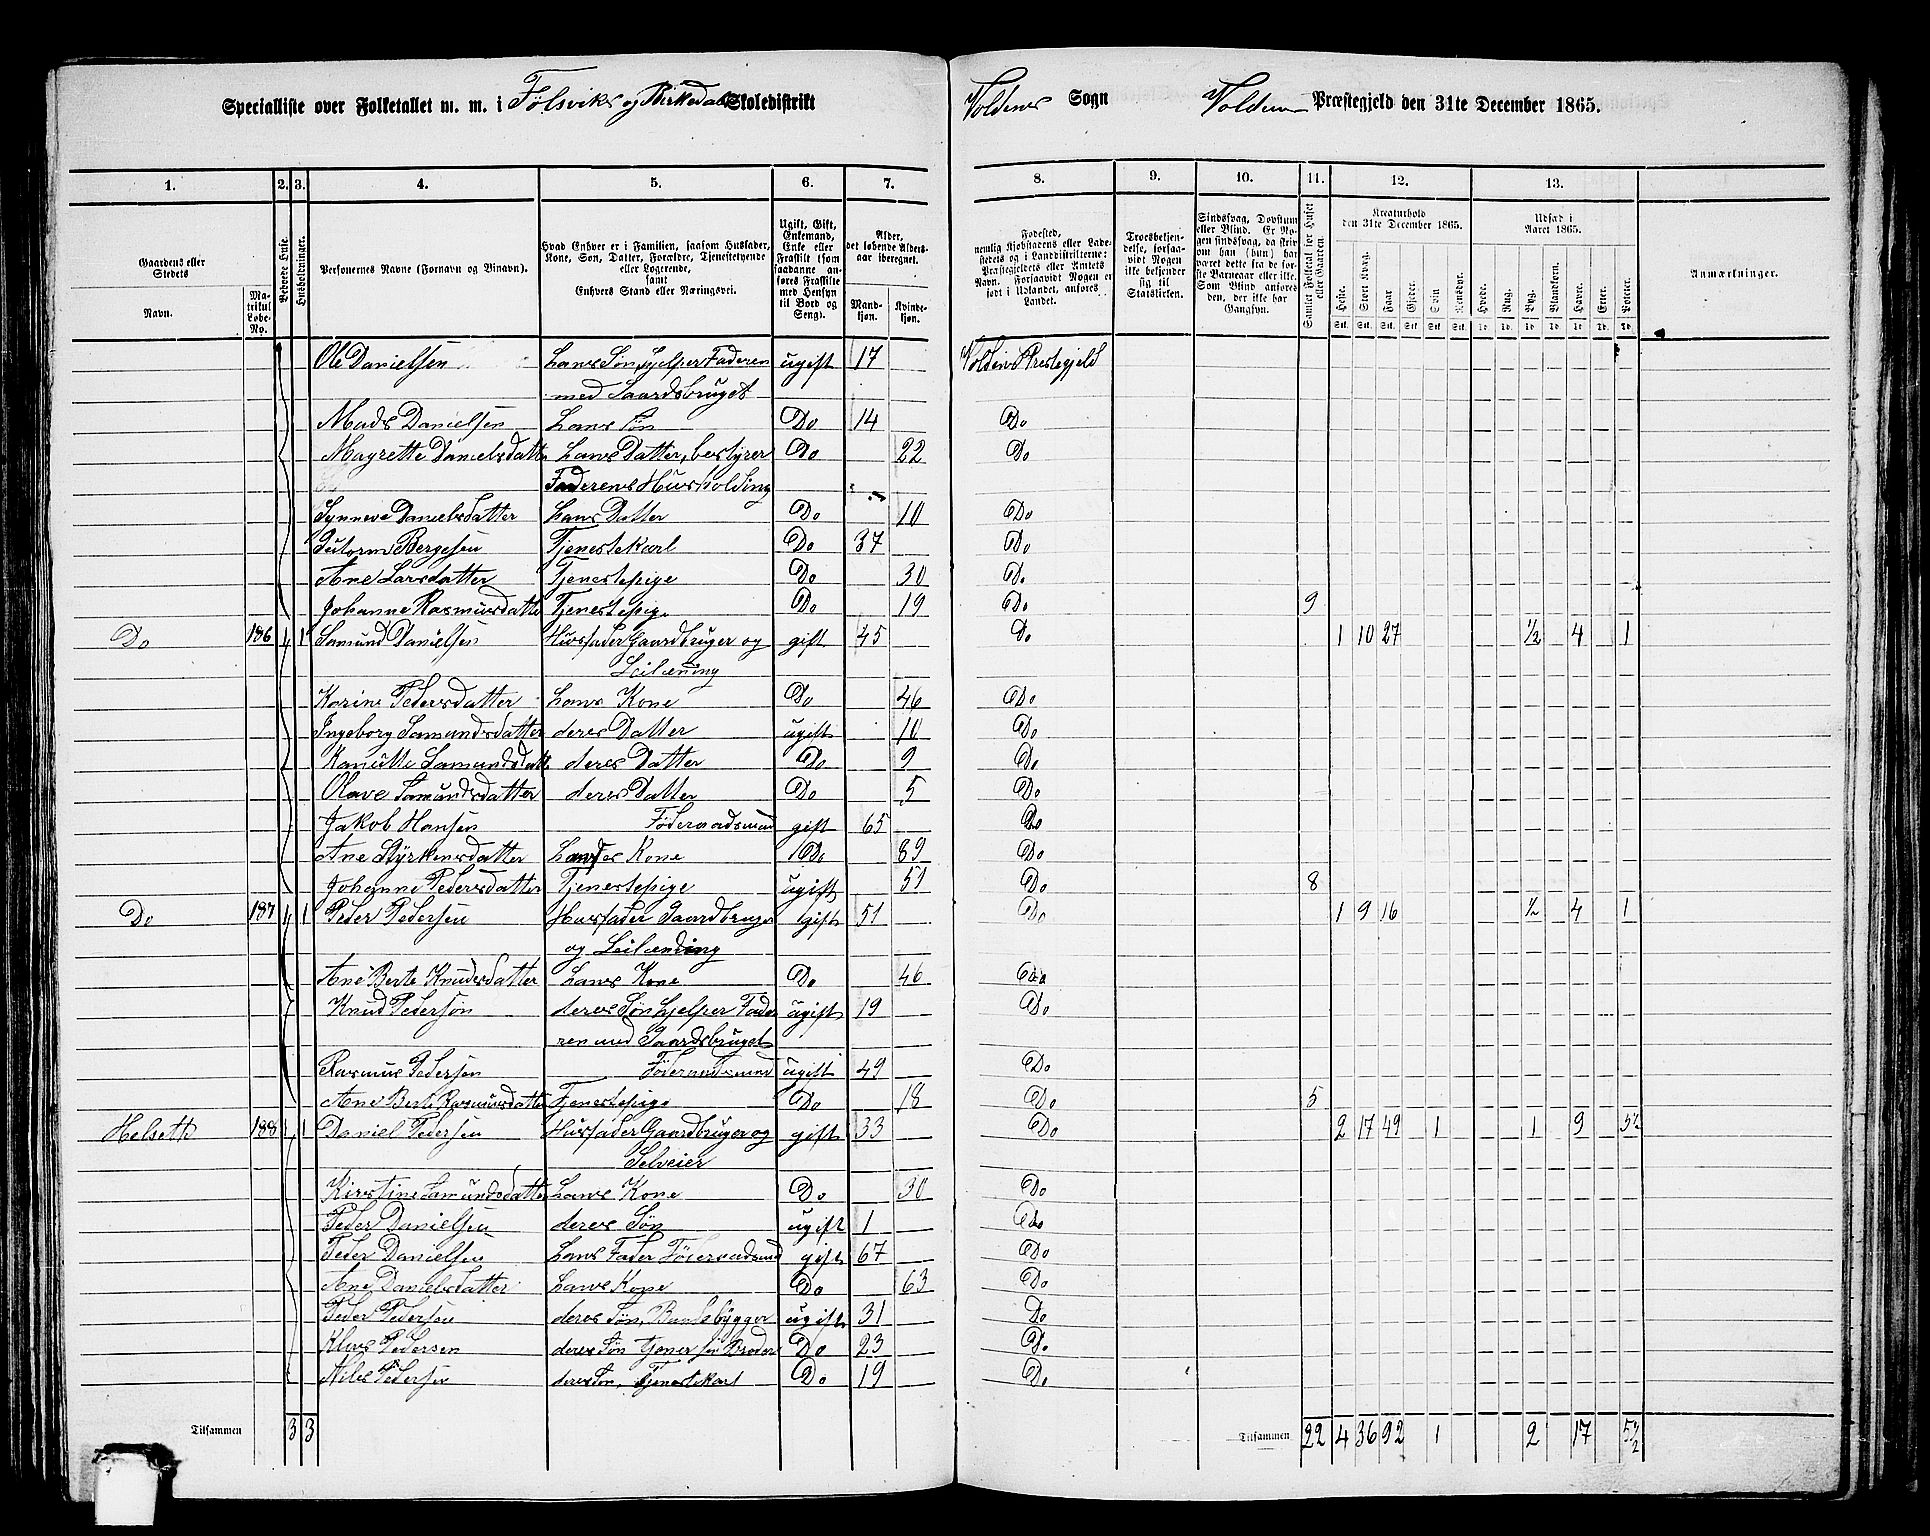 Specialliste over Folketallet m. m. i Følsviks og Birkedals Skoledistrikt Voldens Sogn Voldens Præstegjeld den 31te December 1865.
1. 2. 3. 4. 5. 6. 7. 8. 9. 10. 11. 12. 13.
Gaardens eller Stedets
Navn. Matrikul Løbe-No.
Beboede Huse.
Husholdninger.
Personernes Navne (Fornavn og Tilnavn).
Hvad Enhver er i Familien, saasom Husfader, Kone, Søn, Datter, Forældre, Tjenestetyende eller Logerende, samt Enhvers Stand eller Næringsvei.
Ugift, Gift, Enkemand, Enke eller Fraskilt (som saadanne anføres Fraskilte med Hensyn til Bord og Seng).
Alder, det løbende Aldersaar iberegnet.
Mandkjøn. Kvindekjøn.
Fødested, nemlig Kjøbstadens eller Ladestedets og i Landdistrikterne: Præstegjeldets eller Amtets Navn. Forsaavidt Nogen er født i Udlandet, anføres Landet.
Troesbekjendelse, forsaavidt Nogen ikke bekjender sig til Statskirken.
Sindssvag, Døvstum eller Blind. Er Nogen sindssvag, da skrives om han (hun) har været dette fra de første Barneaar eller ikke. Som Blind anføres den, der ikke har Gangsyn.
Samlet Folketal for Huset eller Gaarden.
Kreaturhold den 31te December 1865.
Heste. Stort Kvæg. Faar. Gjeder. Svin. Rensdyr.
Udsæd i Aaret 1865.
Hvede. Rug. Byg. Blandkorn. Havre. Erter. Poteter.
Anmærkninger.
Ole Danielsen hans Søn, hjelper Faderen ugift 17 Voldens Prestegjeld
med Gaardsbruget
Mads Danielsen hans Søn Do 14 Do
Magrette Danielsdatter hans Datter, bestyrer Do 22 Do
Faderens Husholding
Synneve Danielsdatter hans Datter Do 10 Do
Gutorm Bergesen Tjenestekarl Do 37 Do
Ane Larsdatter Tjenestepige Do 30 Do
Johanne Rasmusdatter Tjenestepige Do 19 Do 9
Do 186 1 1 Samund Danielsen Husfader Gaardbruger og gift 45 Do 1 10 27 ½ 4 1
Leilænding
Karine Pedersdatter hans Kone Do 46 Do
Ingeborg Samundsdatter deres Datter ugift 10 Do
Samundsdatt deres Datter Do 9 Do
Olave Samundsdatter deres Datter Do 5 Do
Jakob Hansen Føderaadsmand gift 65 Do
Ane Styrkersdatter hans Kone Do 89 Do
Johanne Pedersdatter Tjenestepige ugift 51 Do 8
Do 187 1 1 Peder Pedersen Husfader Gaardbruger gift 51 Do 1 9 16 ½ 4 1
og Leilænding
Ane Berte Knudsdatter hans Kone Do 46 Do
Knud Pedersøn deres Søn hjelper Fade ugift 19 Do
ren med Gaardsbruget
Rasmus Pedersen Føderaadsmand ugift 49 Do
Ane Berte Rasmusdatter Tjenestepige Do 18 Do 5
Helseth 188 1 1 Daniel Pedersen Husfader Gaardbruger og gift 33 Do 2 17 49 1 1 9 3½
Selveier
Kirstine Samundsdatter hans Kone Do 30 Do
Peder Danielsen deres Søn ugift 1 Do
Peder Danielsen hans Fader Føderaadsmd gift 67 Do
Ane Danielsdatter hans Kone Do 63 Do
Peder Pedersen deres Søn, ugift 31 Do
Klaus Pedersen deres Søn tjener sin Broder Do 23 Do
Nils Pedersen deres Søn, Tjenestekarl Do 19 Do
Tilsammen 3 3 Tilsammen 22 4 36 92 1 2 17 5½